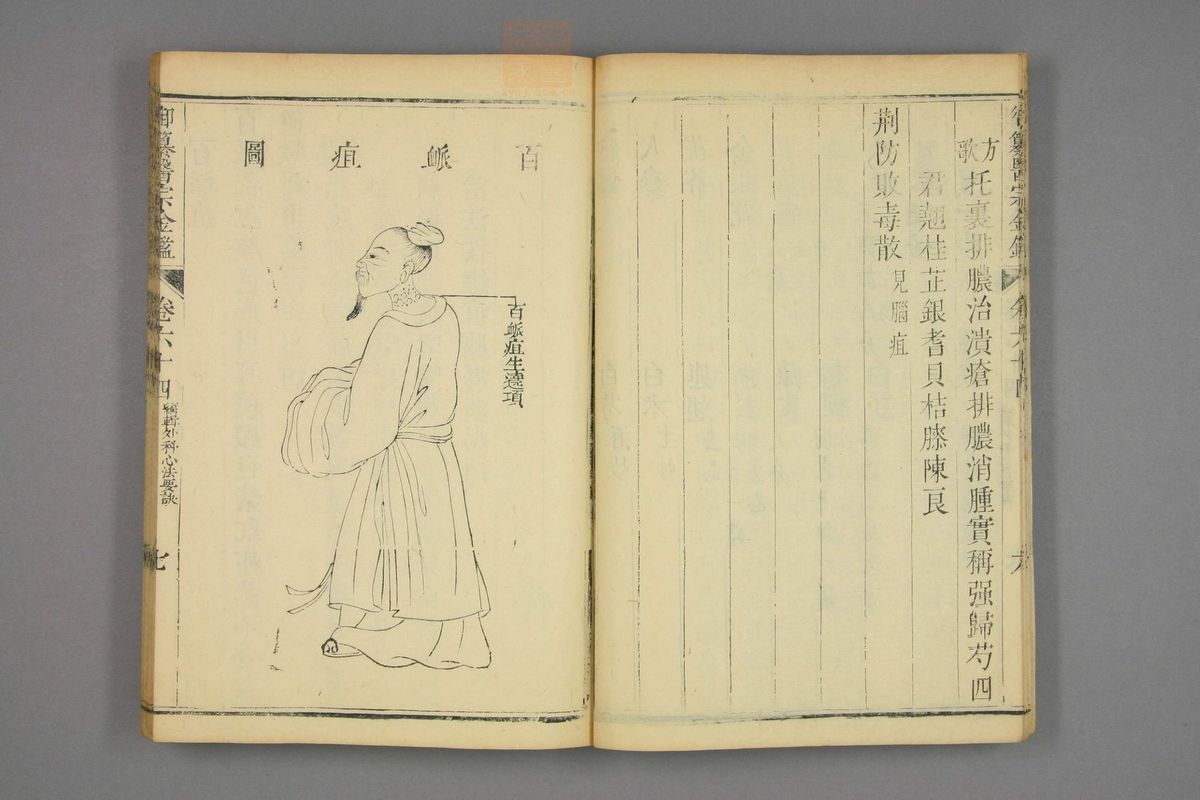 御纂醫宗金鑑 卷六十四 六
方歌 托裏排膿治潰瘡排膿消腫實稱强歸芍四
君翹桂芷銀耆貝桔膝陳艮
荆防敗毒散 見腦疽
百衇疽圖
百衇疽生遶項
御纂醫宗金鑑 卷六十四 編輯外科心法要訣 七